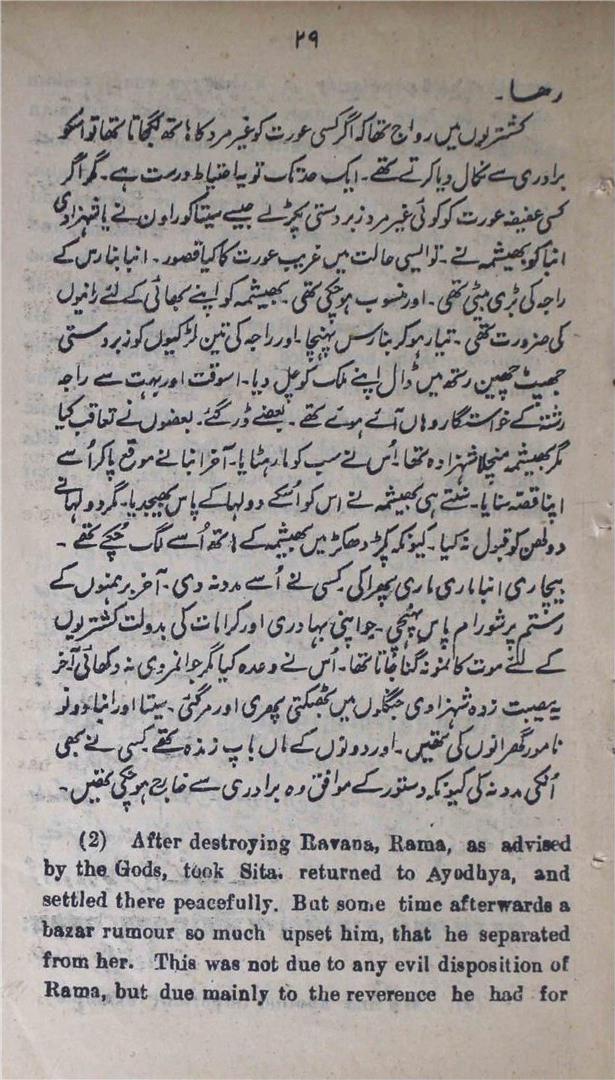 ۲۹
رھا۔
کشتریوں میں رواج تھا کہ اگر کسی عورت کو غیر مرد کا ہاتھ لگجاتا تھا تو اسکو
برادری سے نکال دیا کرتے تھے۔ ایک حد تک تو یہ احتیاط درست ہے۔ مگر اگر
کسی عفیفہ عورت کو کوئی غیر مرد زبردستی پکڑلے جیسے سیتا کو راون نے یا شہزادی
انبا کو بھیشمہ نے۔ تو ایسی حالت میں غریب عورت کا کیا قصور۔ انبا بنارس کے
راجہ کی بڑی بیٹی تھی۔ اور منسوب ہوچکی تھی۔ بھیشمہ کو اپنے بھائی کے لئے رانیوں
کی ضرورت تھی۔ تیار ہوکر بنارس پہنچا۔ اور راجہ کی تین لڑکیوں کو زبردستی
جھپٹ چھین رتھ میں ڈال اپنے ملک کو چل دیا۔ اسوقت اور بہت سے راجہ
رشتہ کے خواستگار وہاں آئے ہوئے تھے۔ بعضے ڈر گئے۔ بعضوں نے تعاقب کیا
مگر بھیشمہ منچلا شہزادہ تھا۔ اُس نے سب کو مار ہٹایا۔ آخر انبا نے موقع پاکر اُسے
اپنا قصہ سنایا۔ سنتے ہی بھیشمہ نے اس کو اُسکے دولہا کے پاس بھیجدیا۔ مگر دولہا نے
دولھن کو قبول نہ کیا۔ کیونکہ پکڑ دھکڑ میں بھیشمہ کے ہاتھ اُسے لگ چکے تھے۔
بیچاری انبا ماری ماری پھرا کی۔ کسی نے اُسے مدد نہ دی۔ آخر برہمنوں کے
رستم پرشورام پاس پہنچی۔ جو اپنی بہادری اور کرامات کی بدولت کشتریوں
کے لئے موت کا نمونہ گنا جاتا تھا۔ اُس نے وعدہ کیا مگر جوانمردی نہ دکھائی آخر
یہ مصیبت زدہ شہزادی جنگلوں میں بھٹکتی پھری اور مرگئی۔ سیتا اور انبا دونو
نامور گھرانوں کی تھیں۔ اور دونوں کے ماں باپ زندہ تھے کسی نے بھی
اُنکی مدد نہ کی کیونکہ دستور کے موافق وہ برادری سے خارج ہوچکی تھیں۔
(2) After destroying Ravana, Rama, as advised
by the Gods, took Sita. returned to Ayodhya, and
settled there peacefully. But some time afterwards a
bazar rumour so much upset him, that he separated
from her. This was not due to any evil disposition of
Rama, but due mainly to the reverence he had for